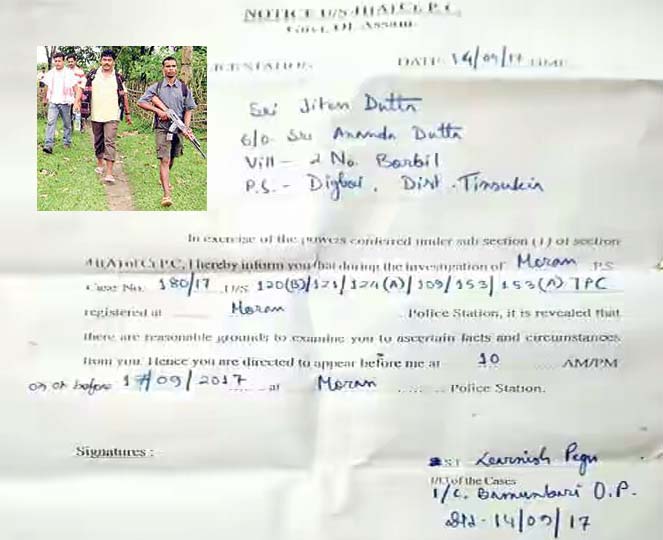 NOTICE U/S 41(A) Cr.P.C.
Govt. Of Assam
DATE 14/09/17 TIME
Sri Jiten Dutta
S/O. Sri Ananda Dutta
Vill – 2 No. Borbil
P.S. - Digboi, Dist. Tinsukia
In exercise of the powers conferred under sub section (1) of section
41(A) of Cr.P.C, I hereby inform you that during the investigation of Moran P.S
Case No. 180/17 U/S 120(B)/121/124(A)/109/153/153(A) IPC
registered at Moran Police Station, it is revealed that
there are reasonable grounds to examine you to ascertain facts and circumstances
from you. Hence you are directed to appear before me at 10 AM/PM
on or before 17/09/2017 at Moran Police Station.
Signatures :
SI Pegu
I/O of the Cases
I/C. Bamunbari O.P.
Dtd - 14/09/17